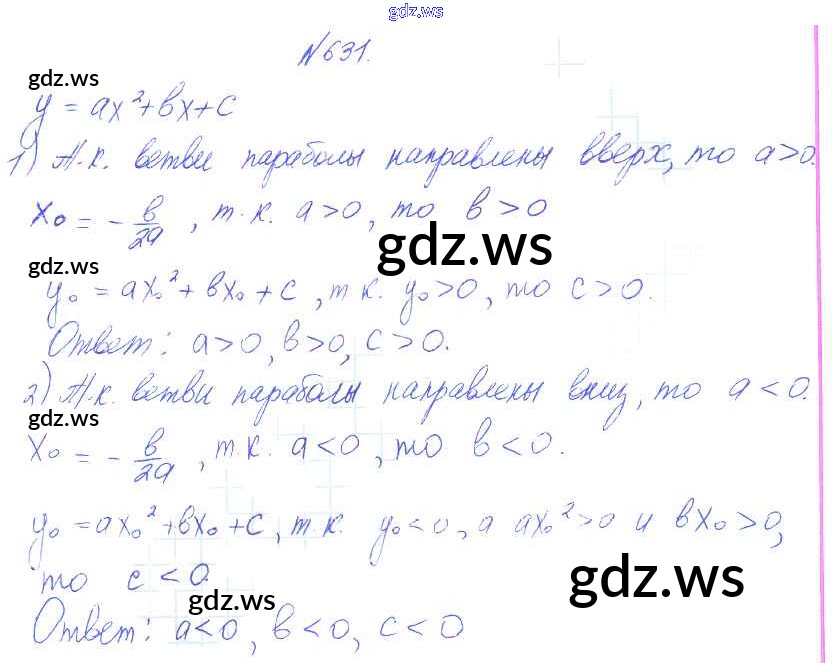 gdz.ws
№631.
gdz.ws
y = ax²+bx+c
1) Т.к. ветви параболы направлены вверх, то a>0.
x₀ = - b/2a , т.к. a>0, то b>0
gdz.ws
gdz.ws
y₀ = ax₀²+bx₀+c, т.к. y₀>0, то c>0.
Ответ: a>0, b>0, c>0.
2) Т.к. ветви параболы направлены вниз, то a<0.
gdz.ws
x₀ = - b/2a , т.к. a<0, то b<0.
y₀ = ax₀²+bx₀+c, т.к. y₀<0, а ax₀²>0 и bx₀>0,
то c<0.
gdz.ws
gdz.ws
Ответ: a<0, b<0, c<0